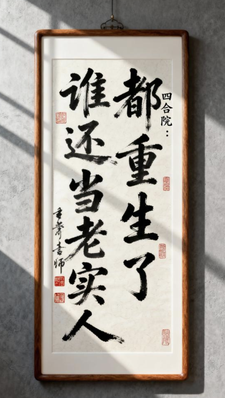 四合院：
都重生了
谁还当老实人